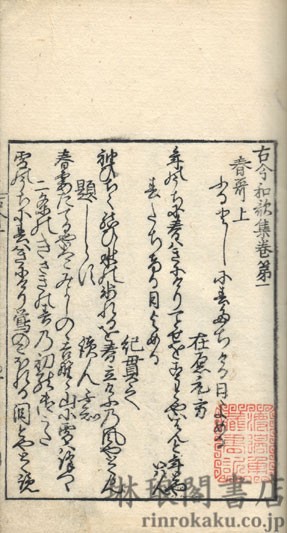 古今和歌集巻第一
春哥上
ふるとしに春たちける日よめる
在原元方
年のうちに春はきにけり一とせをこそとやいはんことしとや
いはん
春たちける日よめる
紀貫之
袖ひちて結ひし水のこほれるを春立けふの風やとくらん
題しらす 読人しらす
春霞たてるやいつこみよしのゝ吉野ゝ山に雪はふりつゝ
二条のきさきの春乃初の御うた
雪のうちに春はきにけり鶯のこほれる涙今やとく覧
琳琅閣書店
rinrokaku.co.jp